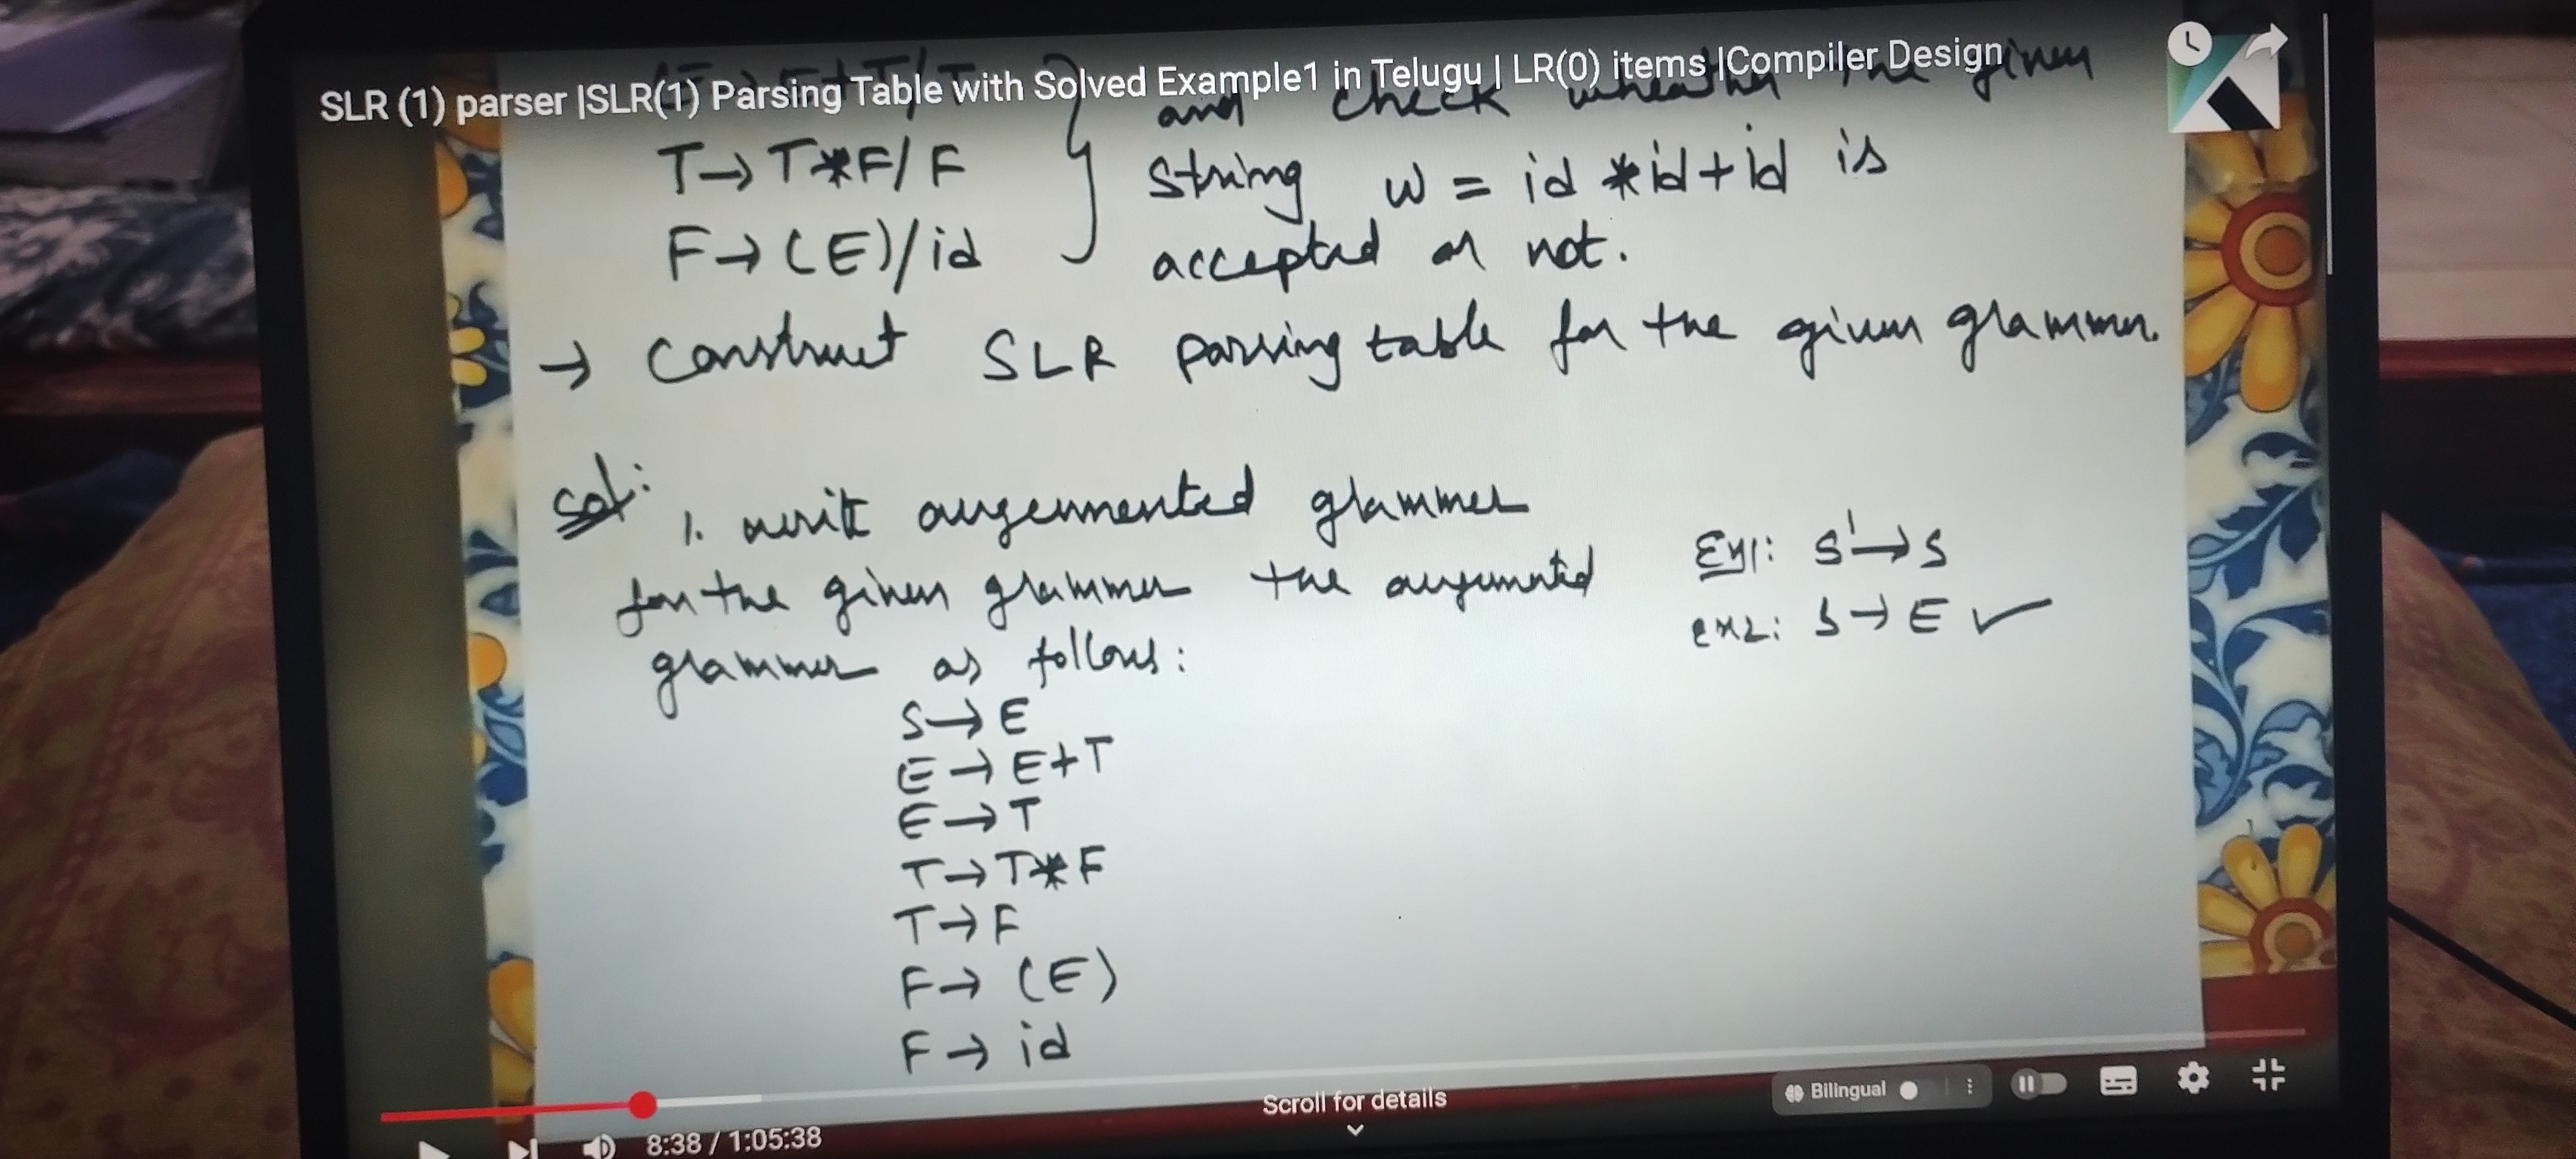 SLR (1) parser |SLR(1) Parsing Table with Solved Example1 in Telugu | LR(0) items |Compiler Design
and check wheather the given
T → T*F/F
string w = id * id + id is
F → (E)/id
accepted or not.
→ construct SLR parsing table for the given grammer.
sol: 1. write augenmented grammer
for the given grammer the augumented
grammer as follows:
Ex1: S' → S
ex2: S → E ✓
S → E
E → E+T
E → T
T → T*F
T → F
F → (E)
F → id
Scroll for details
Bilingual
8:38 / 1:05:38